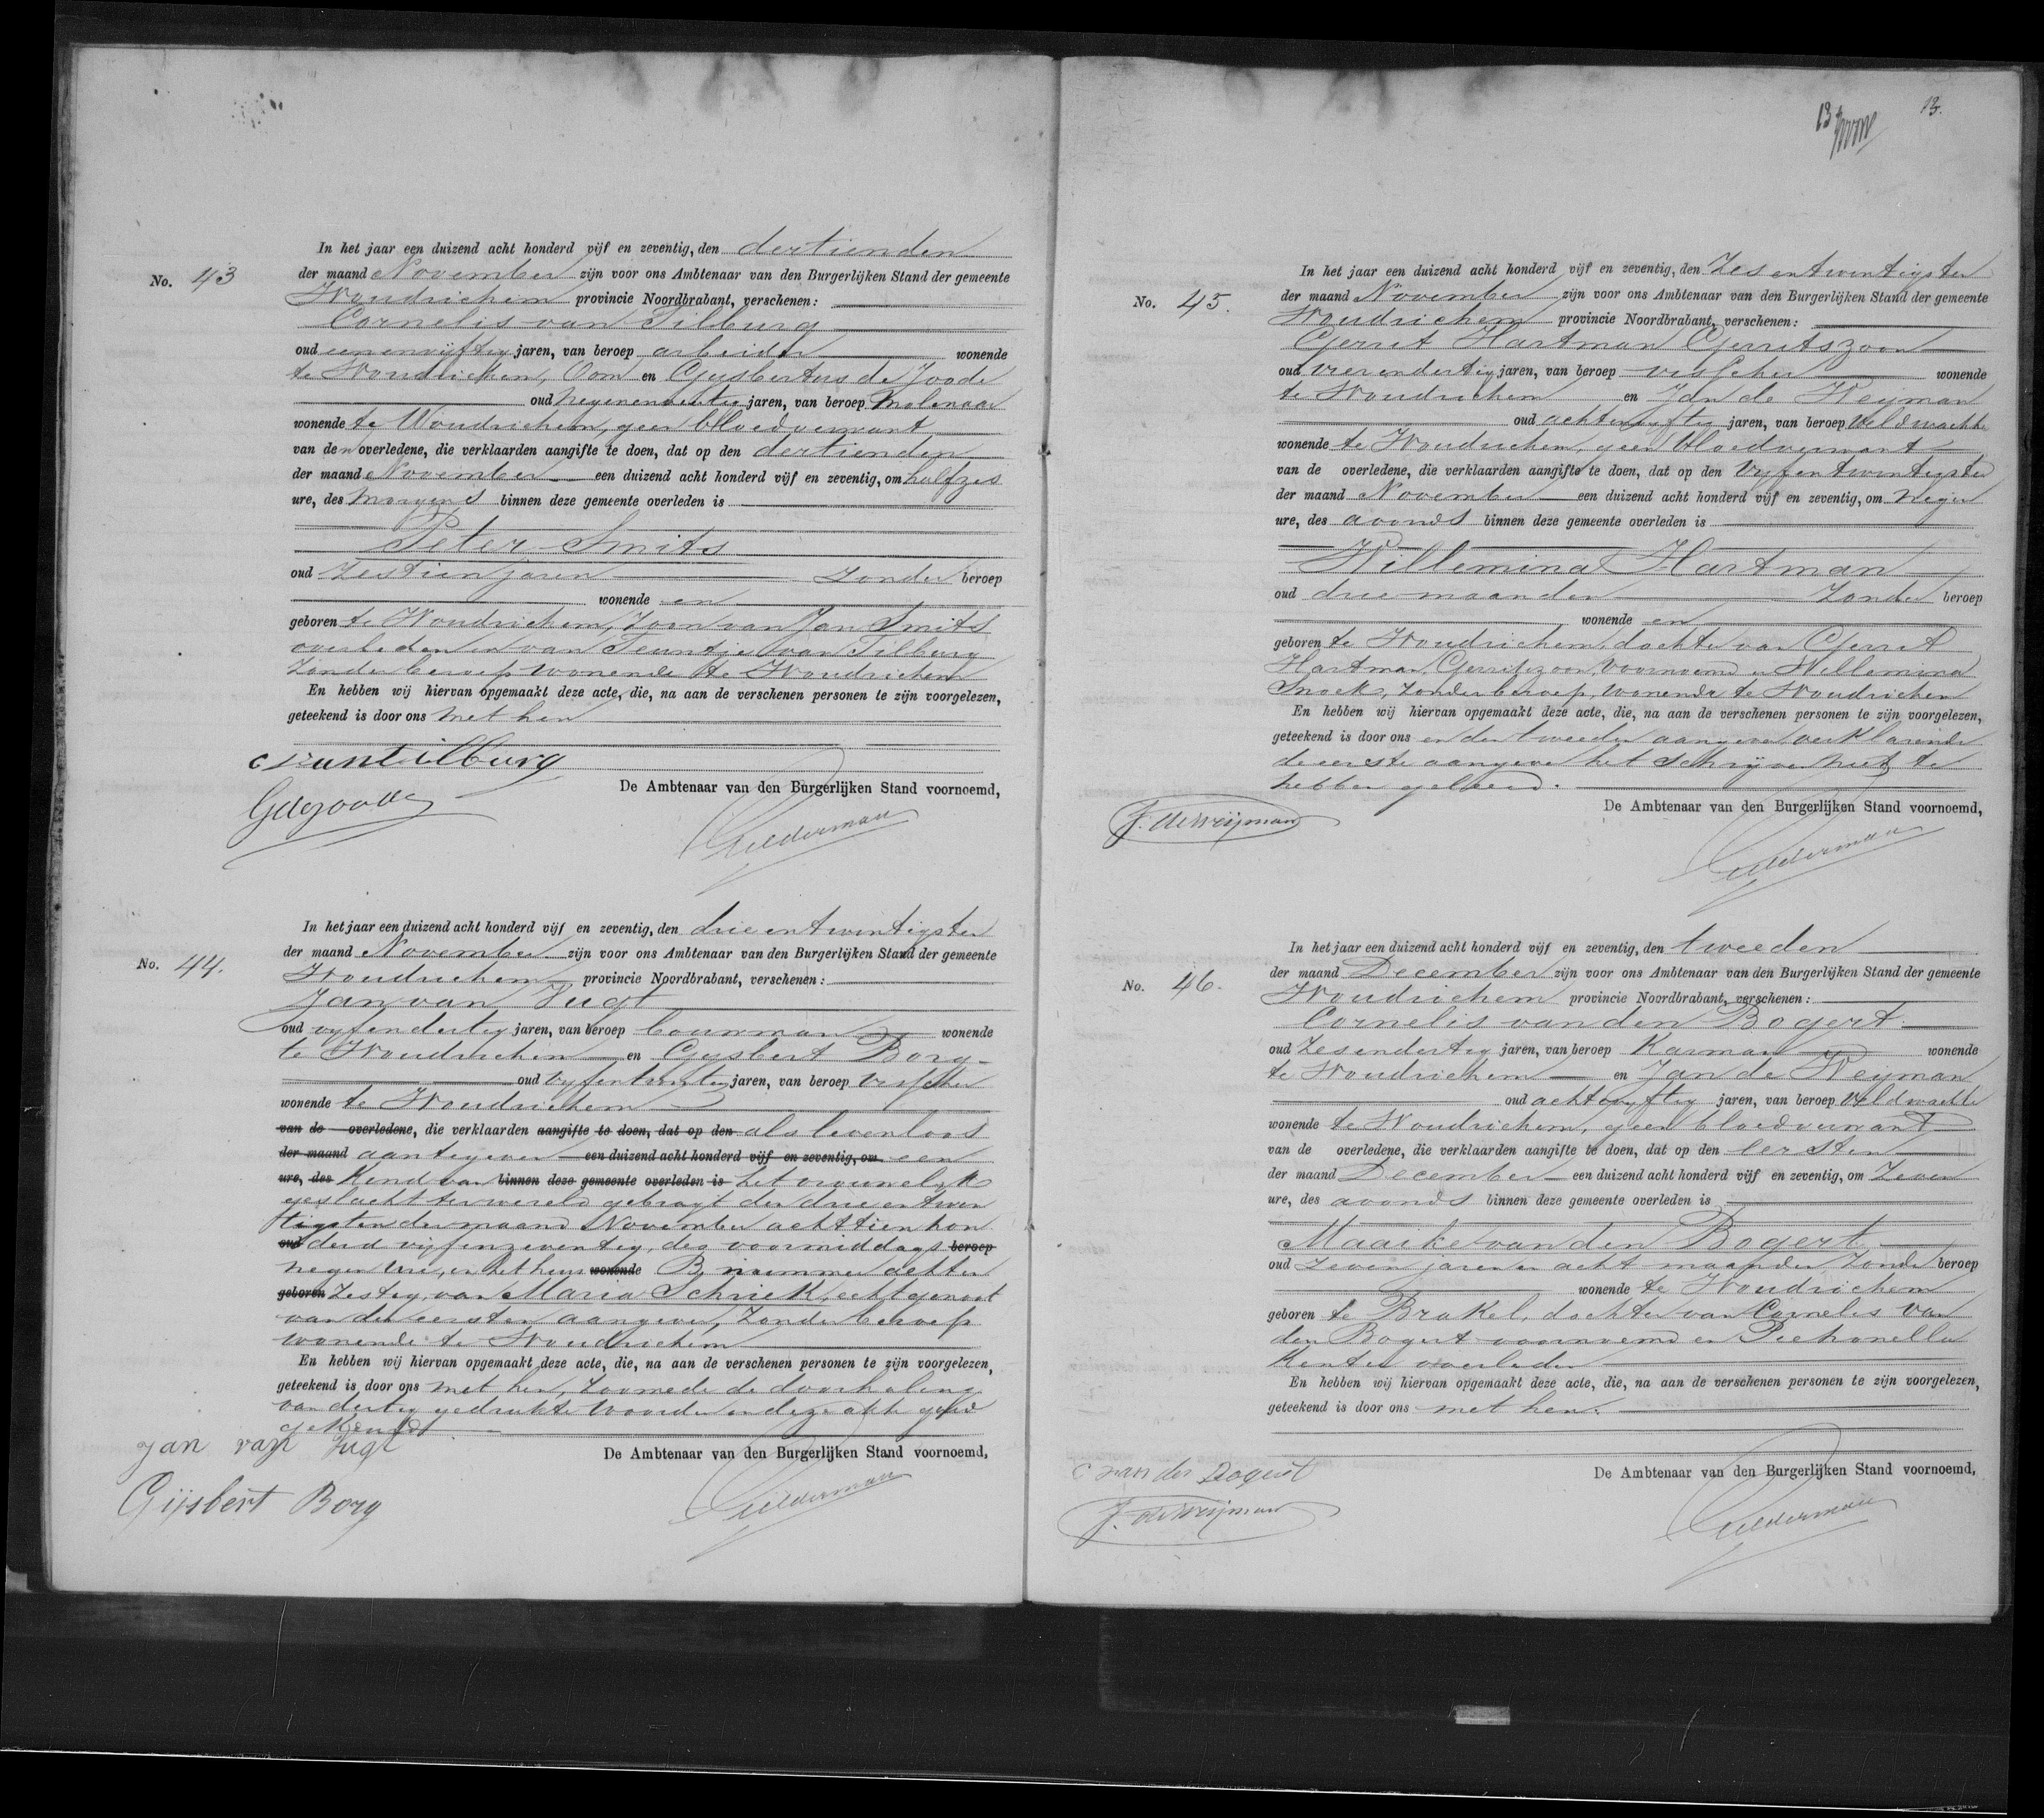 In het jaar een duizend acht honderd vijf en zeventig, den dertienden
No. 43
der maand November zijn voor ons Ambtenaar van den Burgerlijken Stand der gemeente
Woudrichem provincie Noordbrabant, verschenen:
Cornelis van Tilburg
oud eenenvijftig jaren, van beroep arbeider wonende
te Woudrichem, Oom en Gijsbertus de Joode
oud negenentwintig jaren, van beroep Molenaar
wonende te Woudrichem, geen bloedverwant
van den overledene, die verklaarden aangifte te doen, dat op den dertienden
der maand November een duizend acht honderd vijf en zeventig, om halfzes
ure, des morgens binnen deze gemeente overleden is
Peter Smits
oud zestien jaren zonder beroep
wonende en
geboren te Woudrichem, zoon van Jan Smits
overleden en van Teuntje van Tilburg
zonder beroep wonende te Woudrichem
En hebben wij hiervan opgemaakt deze acte, die, na aan de verschenen personen te zijn voorgelezen,
geteekend is door ons met hen
c vantilburg
De Ambtenaar van den Burgerlijken Stand voornoemd,
GdeJoode
Gelderman
In het jaar een duizend acht honderd vijf en zeventig, den drie en twintigsten
der maand November zijn voor ons Ambtenaar van den Burgerlijken Stand der gemeente
No. 44.
Woudrichem provincie Noordbrabant, verschenen:
Jan van Vugt
oud vijfendertig jaren, van beroep bouwman wonende
te Woudrichem en Gijsbert Borg
oud vijfentwintig jaren, van beroep visscher
wonende te Woudrichem
van de overledene, die verklaarden aangifte te doen, dat op den als levenloos
der maand aantegeven een duizend acht honderd vijf en zeventig, om een
ure, des Kind van binnen deze gemeente overleden is het vrouwelijk
geslacht ter wereld gebragt den drie en twin
tigsten der maand November achttien hon
oud derd vijfenzeventig, des voormiddags beroep
negen ure, in het huis wonende B, nummer acht en
geboren zestig, van Maria Schriek, echtgenoot
van den eersten aangever, zonder beroep
wonende te Woudrichem
En hebben wij hiervan opgemaakt deze acte, die, na aan de verschenen personen te zijn voorgelezen,
geteekend is door ons met hen, zoomede de doorhaling
van dertig gedrukte woorden in deze akte goed
gekeurd
Jan van Vugt
De Ambtenaar van den Burgerlijken Stand voornoemd,
Gijsbert Borg
Gelderman
13
13.
In het jaar een duizend acht honderd vijf en zeventig, den Zes en twintigsten
No. 45.
der maand November zijn voor ons Ambtenaar van den Burgerlijken Stand der gemeente
Woudrichem provincie Noordbrabant, verschenen:
Gerrit Hartman Gerritszoon
oud vierendertig jaren, van beroep visscher wonende
te Woudrichem en Jan de Weijman
oud achtenvijftig jaren, van beroep veldwachter
wonende te Woudrichem, geen bloedverwant
van de overledene, die verklaarden aangifte te doen, dat op den vijfentwintigsten
der maand November een duizend acht honderd vijf en zeventig, om negen
ure, des avonds binnen deze gemeente overleden is
Willemina Hartman
oud drie maanden zonder beroep
wonende en
geboren te Woudrichem, dochter van Gerrit
Hartman Gerritszoon, voornoemd en Willemina
Snoek, zonder beroep, wonende te Woudrichem
En hebben wij hiervan opgemaakt deze acte, die, na aan de verschenen personen te zijn voorgelezen,
geteekend is door ons en den tweeden aangever verklarende
de eerste aangever het schrijven niet te
hebben geleerd.
De Ambtenaar van den Burgerlijken Stand voornoemd,
J. de Weijman
Gelderman
In het jaar een duizend acht honderd vijf en zeventig, den tweeden
der maand December zijn voor ons Ambtenaar van den Burgerlijken Stand der gemeente
No. 46.
Woudrichem provincie Noordbrabant, verschenen:
Cornelis van den Bogert
oud zesendertig jaren, van beroep Karman wonende
te Woudrichem en Jan de Weijman
oud achtenvijftig jaren, van beroep veldwachter
wonende te Woudrichem, geen bloedverwant
van de overledene, die verklaarden aangifte te doen, dat op den eersten
der maand December een duizend acht honderd vijf en zeventig, om zeven
ure, des avonds binnen deze gemeente overleden is
Maaike van den Bogert
oud zeven jaren en acht maanden zonder beroep
wonende te Woudrichem
geboren te Brakel, dochter van Cornelis van
den Bogert voornoemd en Pieternella
overleden
En hebben wij hiervan opgemaakt deze acte, die, na aan de verschenen personen te zijn voorgelezen,
geteekend is door ons met hen.
De Ambtenaar van den Burgerlijken Stand voornoemd,
C van den Bogert
J. de Weijman
Gelderman